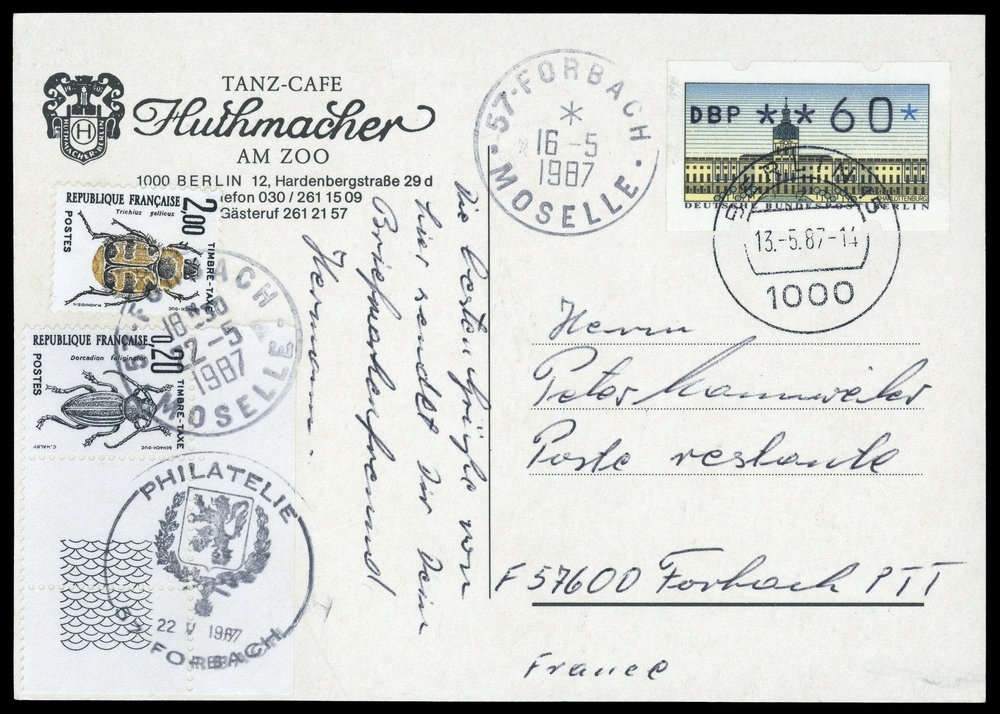 TANZ-CAFE
Huthmacher
AM ZOO
1000 BERLIN 12, Hardenbergstraße 29 d
efon 030 / 261 15 09
Gästeruf 261 21 57
HUTHMACHER-BERLIN
H
57-FORBACH
*
16-5
1987
MOSELLE
DBP ** 60*
DEUTSCHE BUNDESPOST BERLIN
13.-5.87-14
1000
RÉPUBLIQUE FRANÇAISE
Trichius gallicus
2,00
POSTES
TIMBRE-TAXE
RÉPUBLIQUE FRANÇAISE
Dorcadion fuliginator
0,20
POSTES
TIMBRE-TAXE
57-FORBACH
22-5
1987
MOSELLE
PHILATELIE
22 V 1987
57 FORBACH
Die besten Grüße von
hier sendet Dir Dein
Briefmarkenfreund
Hermann.
Herrn
Peter
Poste restante
F 57600 Forbach PTT
France